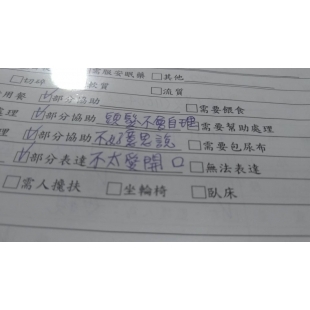 需服安眠藥 □其他
軟質 □流質
用餐 ☑部分協助 □需要餵食
處理 ☑部分協助 頭髮不要自理 □需要幫助處理
理 ☑部分協助 不好意思說 □需要包尿布
☑部分表達 不太愛開口 □無法表達
□需人攙扶 □坐輪椅 □臥床